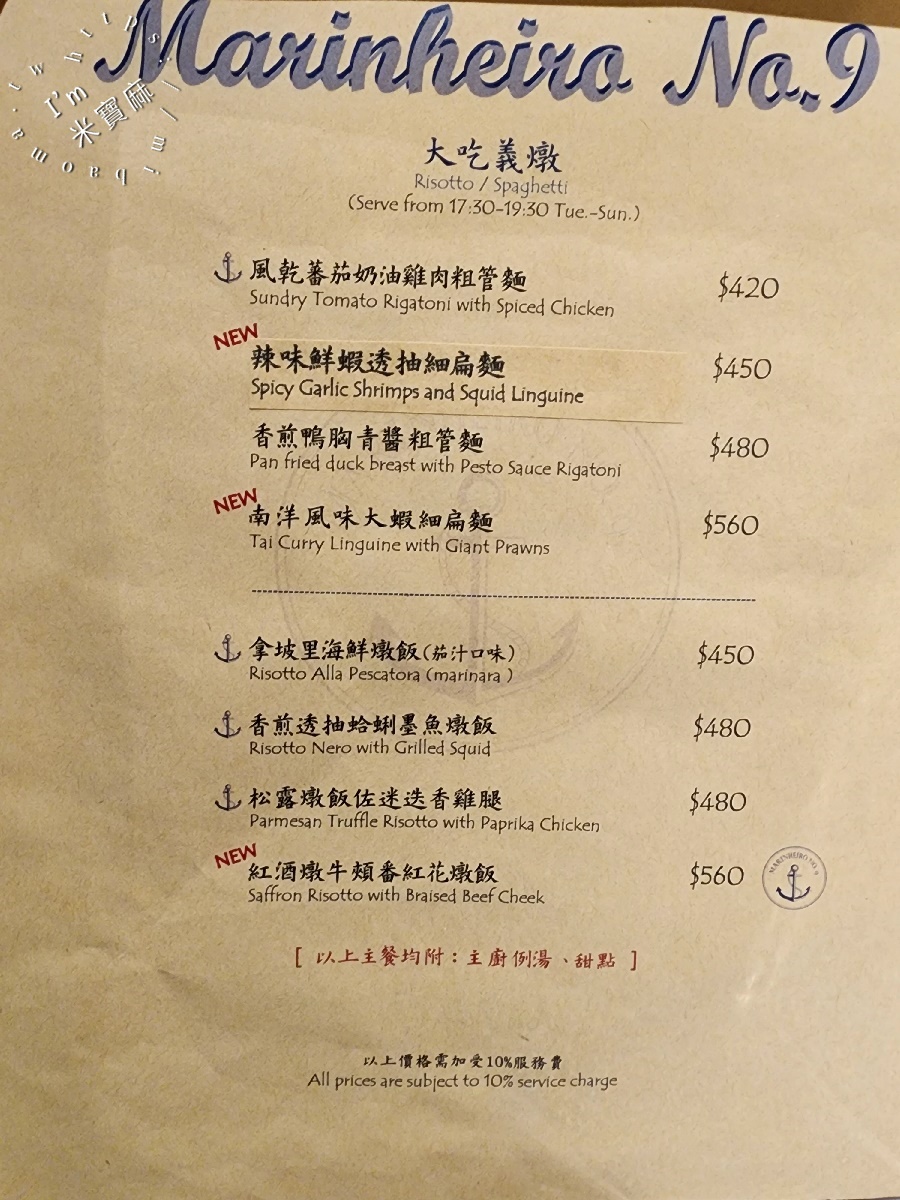 Marinheiro No.9
I'm
米寶麻
大吃義燉
Risotto / Spaghetti
(Serve from 17:30-19:30 Tue.-Sun.)
風乾蕃茄奶油雞肉粗管麵 $420
Sundry Tomato Rigatoni with Spiced Chicken
NEW
辣味鮮蝦透抽細扁麵 $450
Spicy Garlic Shrimps and Squid Linguine
香煎鴨胸青醬粗管麵 $480
Pan fried duck breast with Pesto Sauce Rigatoni
NEW
南洋風味大蝦細扁麵 $560
Tai Curry Linguine with Giant Prawns
拿坡里海鮮燉飯(茄汁口味) $450
Risotto Alla Pescatora (marinara )
香煎透抽蛤蜊墨魚燉飯 $480
Risotto Nero with Grilled Squid
松露燉飯佐迷迭香雞腿 $480
Parmesan Truffle Risotto with Paprika Chicken
NEW
紅酒燉牛頰番紅花燉飯 $560
Saffron Risotto with Braised Beef Cheek
MARINHEIRO NO.9
[ 以上主餐均附：主廚例湯、甜點 ]
以上價格需加受10%服務費
All prices are subject to 10% service charge